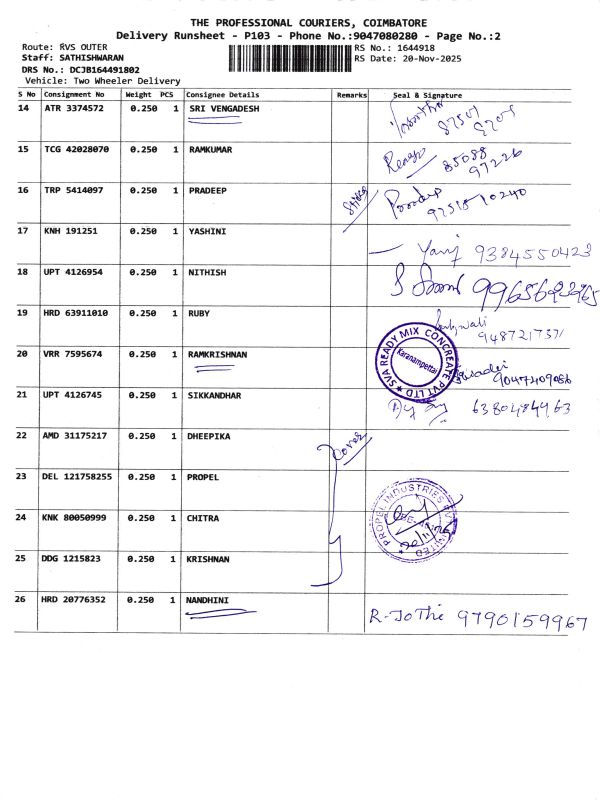 THE PROFESSIONAL COURIERS, COIMBATORE
Delivery Runsheet - P103 - Phone No.:9047080280 - Page No.:2
Route: RVS OUTER
RS No.: 1644918
Staff: SATHISHWARAN
RS Date: 20-Nov-2025
DRS No.: DCJB164491802
Vehicle: Two Wheeler Delivery
S No Consignment No Weight PCS Consignee Details Remarks Seal & Signature
14 ATR 3374572 0.250 1 SRI VENGADESH
15 TCG 42028070 0.250 1 RAMKUMAR 85088
97226
16 TRP 5414097 0.250 1 PRADEEP Pradeep
17 KNH 191251 0.250 1 YASHINI 9384550423
18 UPT 4126954 0.250 1 NITHISH
19 HRD 63911010 0.250 1 RUBY
SVA READY MIX CONCREATE PVT LTD
Karanampettai
20 VRR 7595674 0.250 1 RAMKRISHNAN 9047409056
21 UPT 4126745 0.250 1 SIKKANDHAR 6380484963
22 AMD 31175217 0.250 1 DHEEPIKA
23 DEL 121758255 0.250 1 PROPEL
PROPEL INDUSTRIES PVT LIMITED
24 KNK 80050999 0.250 1 CHITRA
25 DDG 1215823 0.250 1 KRISHNAN
26 HRD 20776352 0.250 1 NANDHINI R-JoThi 9790159967